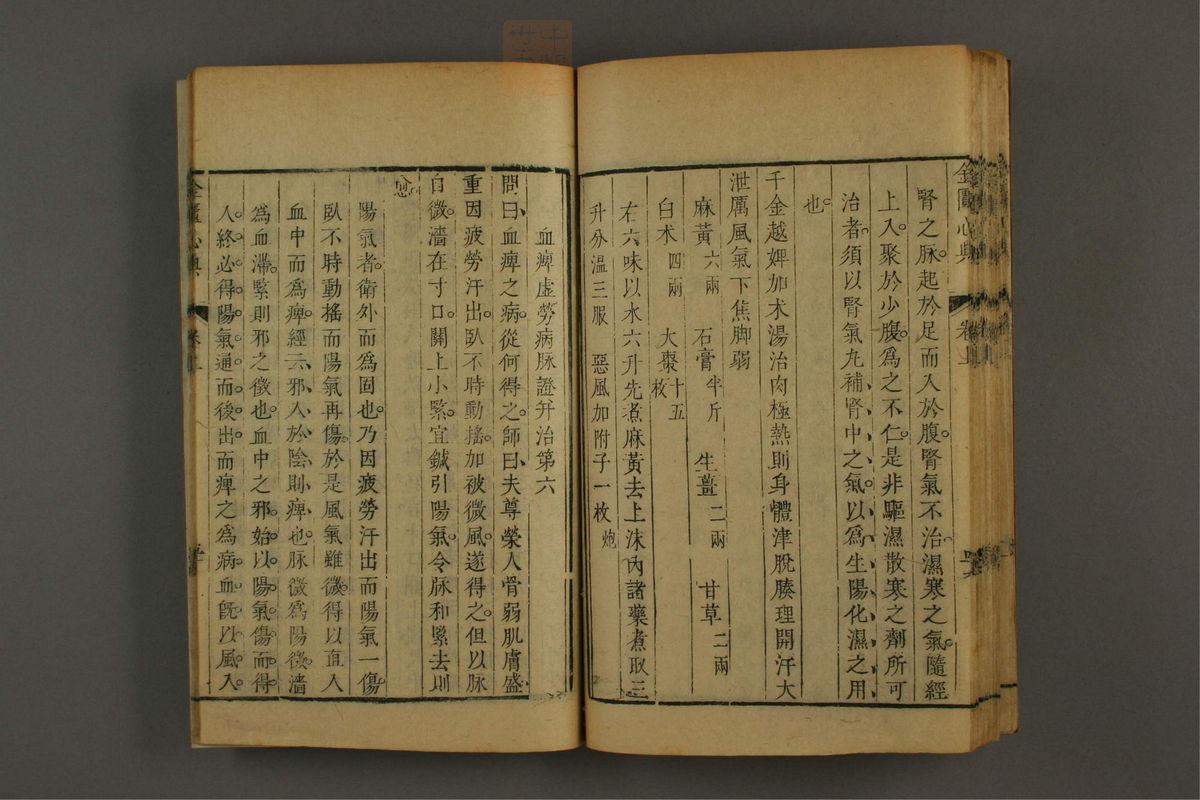 金匱心典
卷上
腎之脉。起於足而入於腹。腎氣不治。濕寒之氣。隨經
上入。聚於少腹。爲之不仁。是非驅濕散寒之劑所可
治者。須以腎氣丸補腎中之氣。以爲生陽化濕之用
也。
千金越婢加术湯治肉極熱則身體津脫腠理開汗大
泄厲風氣下焦脚弱
麻黃六兩 石膏半斤 生薑二兩 甘草二兩
白术四兩 大棗十五枚
右六味以水六升先煮麻黃去上沫內諸藥煮取三
升分溫三服 惡風加附子一枚炮
血痺虛勞病脉證并治第六
問曰血痺之病。從何得之。師曰夫尊榮人骨弱肌膚盛
重因疲勞汗出。臥不時動搖。加被微風。遂得之。但以脉
自微。濇在寸口。關上小緊。宜鍼引陽氣。令脉和緊去則
愈。
陽氣者。衛外而爲固也。乃因疲勞汗出而陽氣一傷。
臥不時動搖而陽氣再傷。於是風氣雖微。得以直入
血中而爲痺。經云。邪入於陰則痺也。脉微爲陽微。濇
爲血滯。緊則邪之徵也。血中之邪。始以陽氣傷而得
入。終必得陽氣通。而後出。而痺之爲病。血旣以風入。
金匱心典
卷上